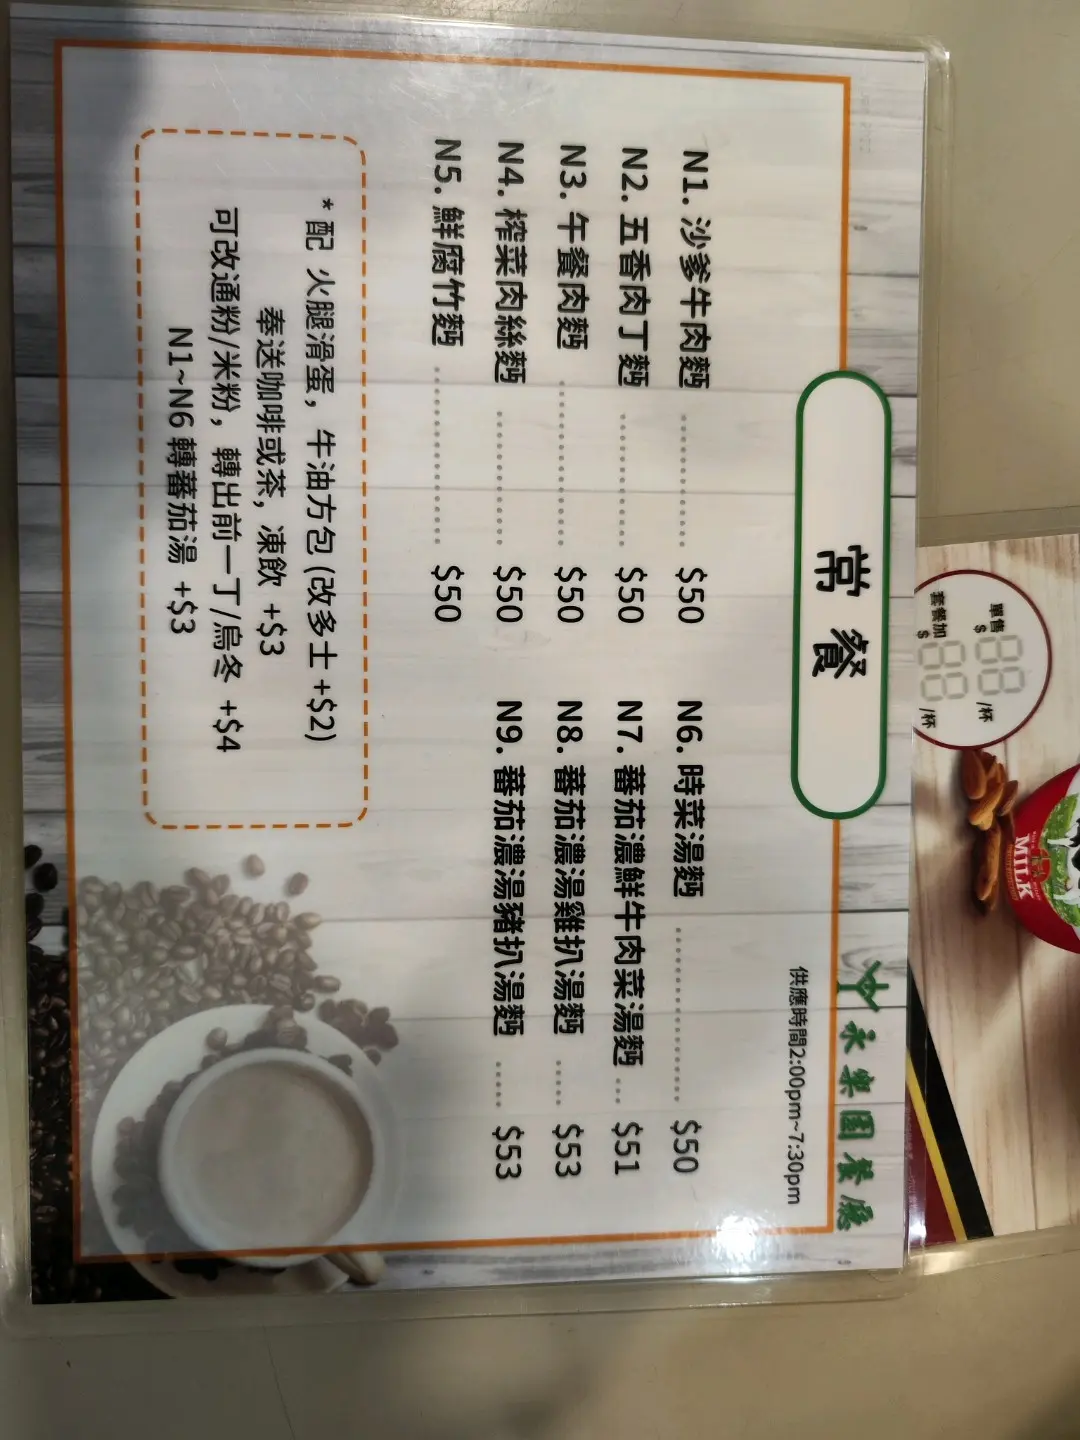 常餐
永樂園餐廳
供應時間2:00pm~7:30pm
N1. 沙爹牛肉麵 $50
N2. 五香肉丁麵 $50
N3. 午餐肉麵 $50
N4. 榨菜肉絲麵 $50
N5. 鮮腐竹麵 $50
N6. 時菜湯麵 $50
N7. 蕃茄濃鮮牛肉菜湯麵 $51
N8. 蕃茄濃湯雞扒湯麵 $53
N9. 蕃茄濃湯豬扒湯麵 $53
*配 火腿滑蛋，牛油方包 (改多士 +$2)
奉送咖啡或茶，凍飲 +$3
可改通粉/米粉，轉出前一丁/烏冬 +$4
N1~N6 轉蕃茄湯 +$3
單售 $ 88 /杯
套餐加 $ 88 /杯
MILK